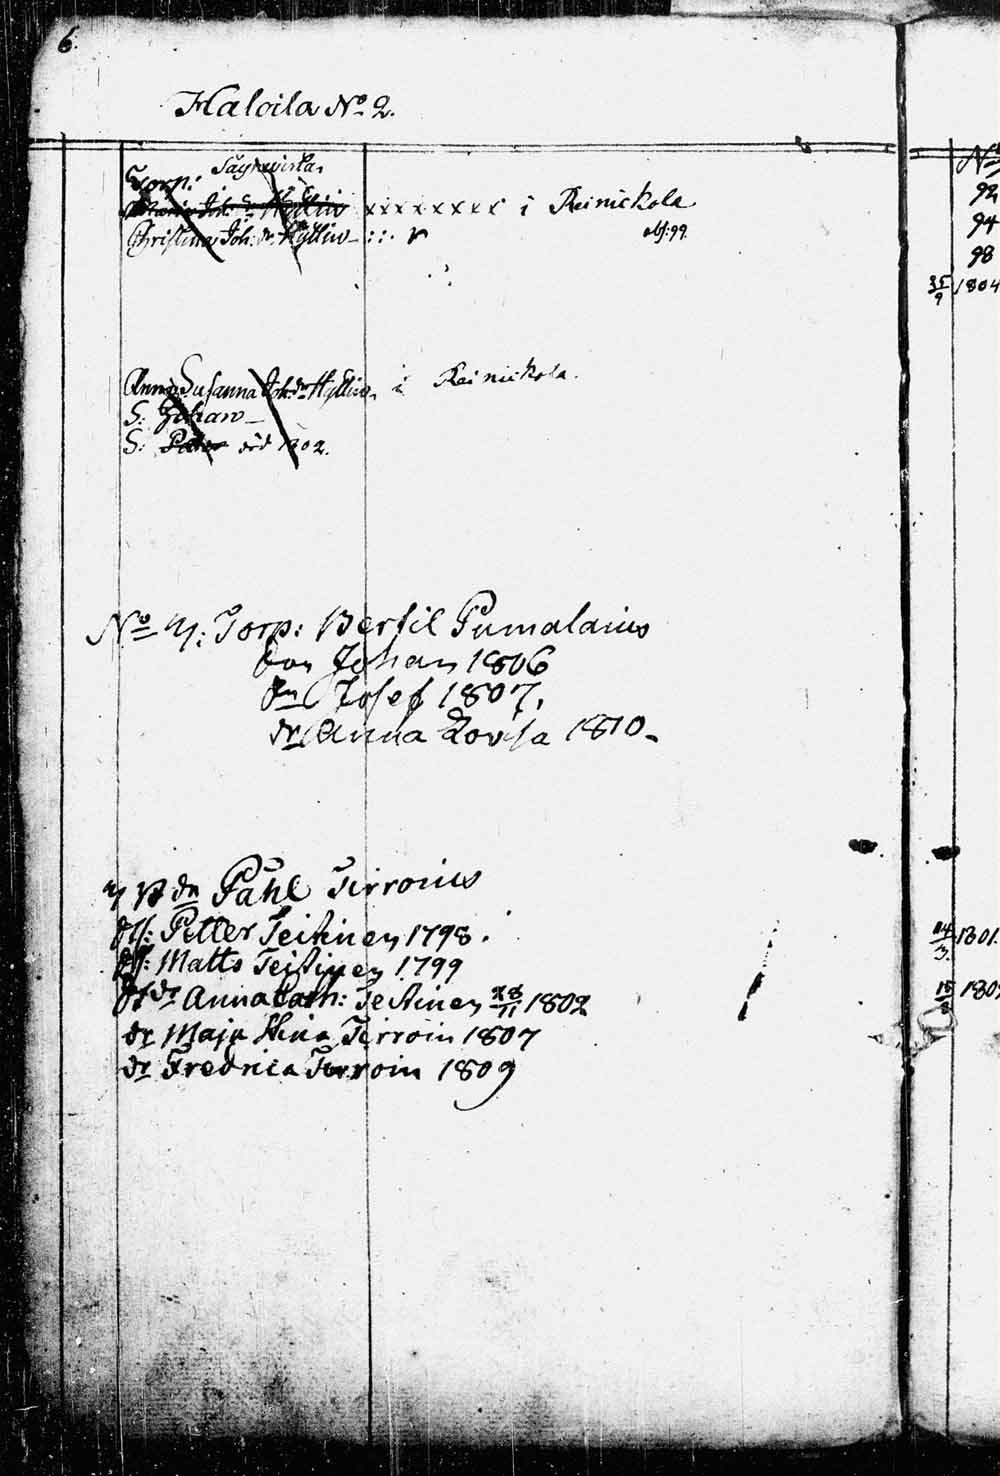 6.
Haloila No 2.
Torp:
Joh: dr Hyllin xxxxxxxx i Reinickola
Christina Joh: dr Hyllin abs: 99
Anna Susanna Joh: dr Hyllin i Reinickola.
S: Johan
S: Petter död 1802.
No 4: Torp: Bertil Pumalainē
Son Johan 1806
Sn Josef 1807.
dr Anna Lovisa 1810
Påhl Tirroinē
Petter Teitinen 1798.
Matts Teitinen 1799
dr Anna Cath: Teitinen 28/11 1802
dr Maja Stina Tirroin 1807
dr Fredrica Tirroin 1809
No
92
94
98
1804
14/3 1801.
15 180